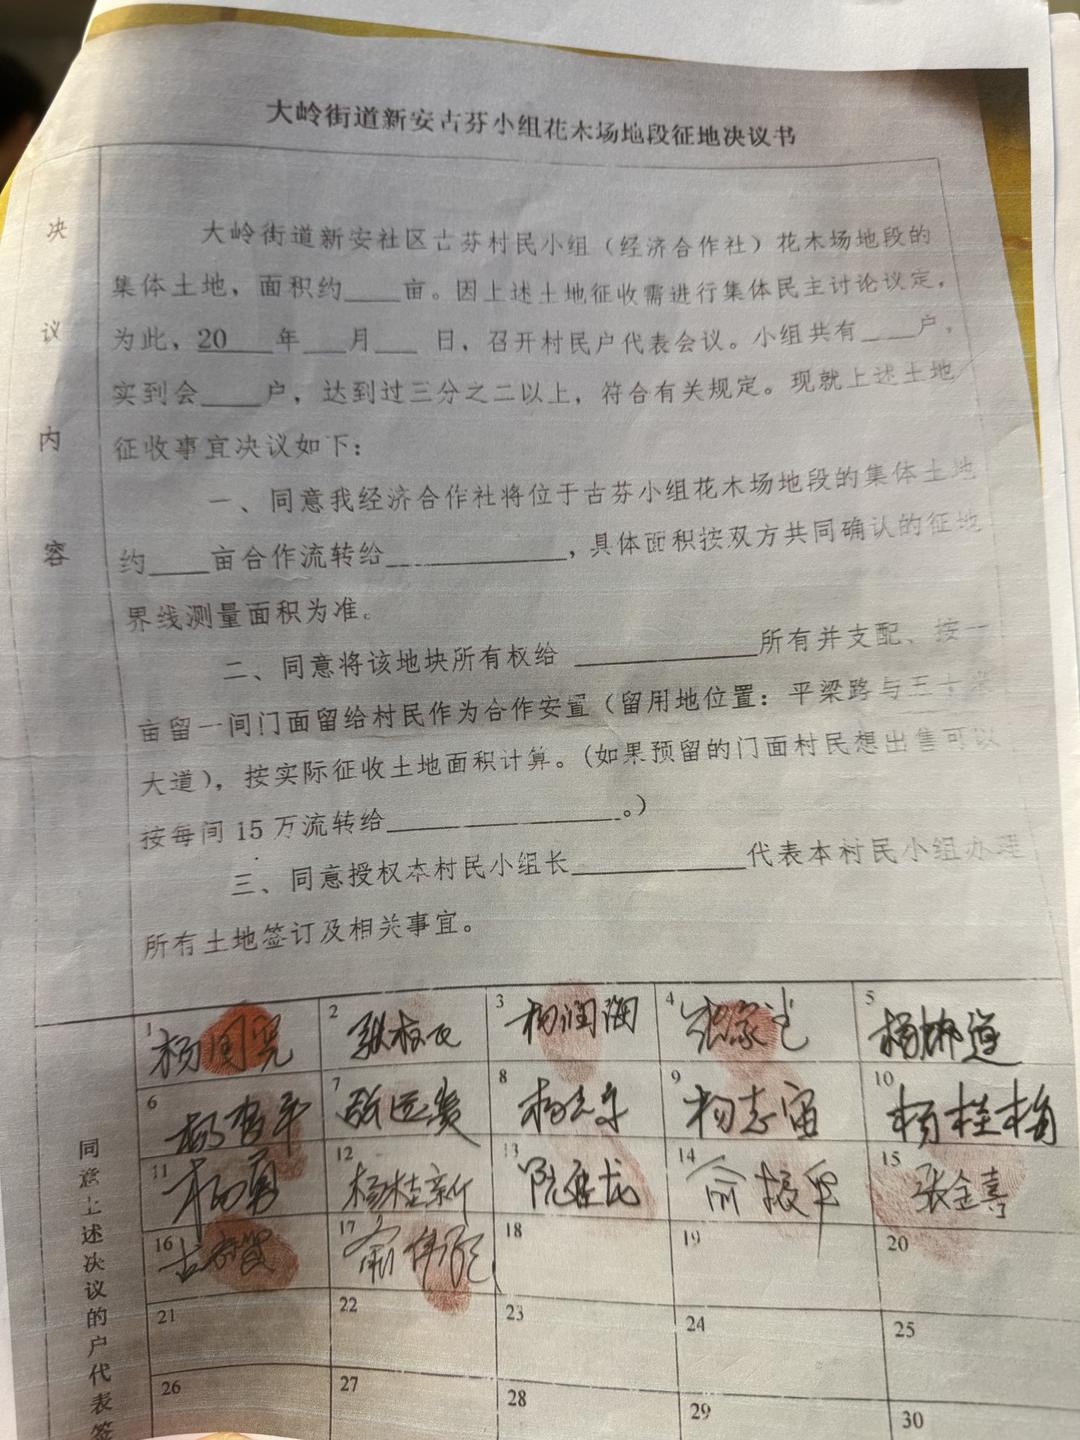 大岭街道新安古芬小组花木场地段征地决议书
决议内容
大岭街道新安社区古芬村民小组（经济合作社）花木场地段的
集体土地，面积约____亩。因上述土地征收需进行集体民主讨论议定，
为此，20___年___月___日，召开村民户代表会议。小组共有____户，
实到会____户，达到过三分之二以上，符合有关规定。现就上述土地
征收事宜决议如下：
一、同意我经济合作社将位于古芬小组花木场地段的集体土地
约____亩合作流转给____________，具体面积按双方共同确认的征地
界线测量面积为准。
二、同意将该地块所有权给____________所有并支配、按一
亩留一间门面留给村民作为合作安置（留用地位置：平梁路与五十米
大道），按实际征收土地面积计算。（如果预留的门面村民想出售可以
按每间15万流转给________________。）
三、同意授权本村民小组长____________代表本村民小组办理
所有土地签订及相关事宜。
同意上述决议的户代表签
1 2 3 杨润海 4 张家 5 杨
6 7 8 杨志 9 杨志 10 杨桂梅
11 杨勇 12 杨桂新 13 龙 14 俞 15 张金喜
16 古 17 俞 18 19 20
21 22 23 24 25
26 27 28 29 30